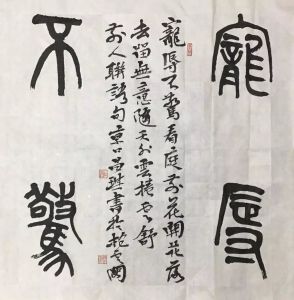 寵辱
不驚
寵辱不驚看庭前花開花落
去留無意隨天外雲捲雲舒
前人聯語句京口書於閣